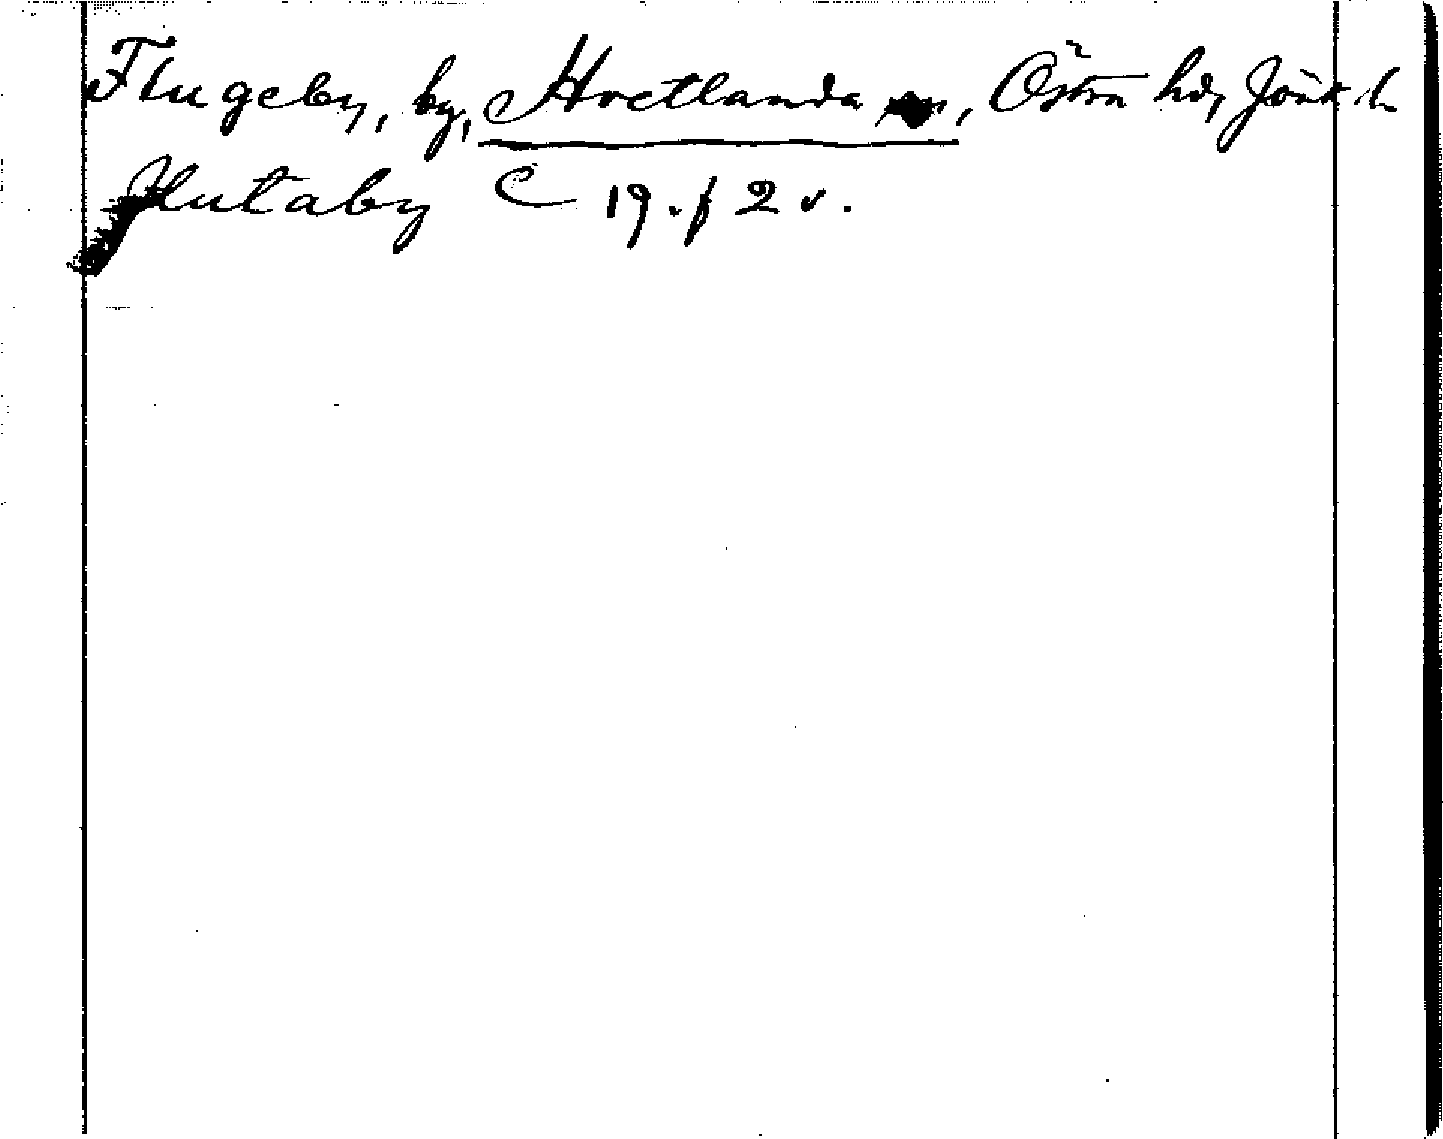 Flugeby, by, Hvetlanda sn, Östra hd, Jönk l.
Flutaby C 19. f 2 v.